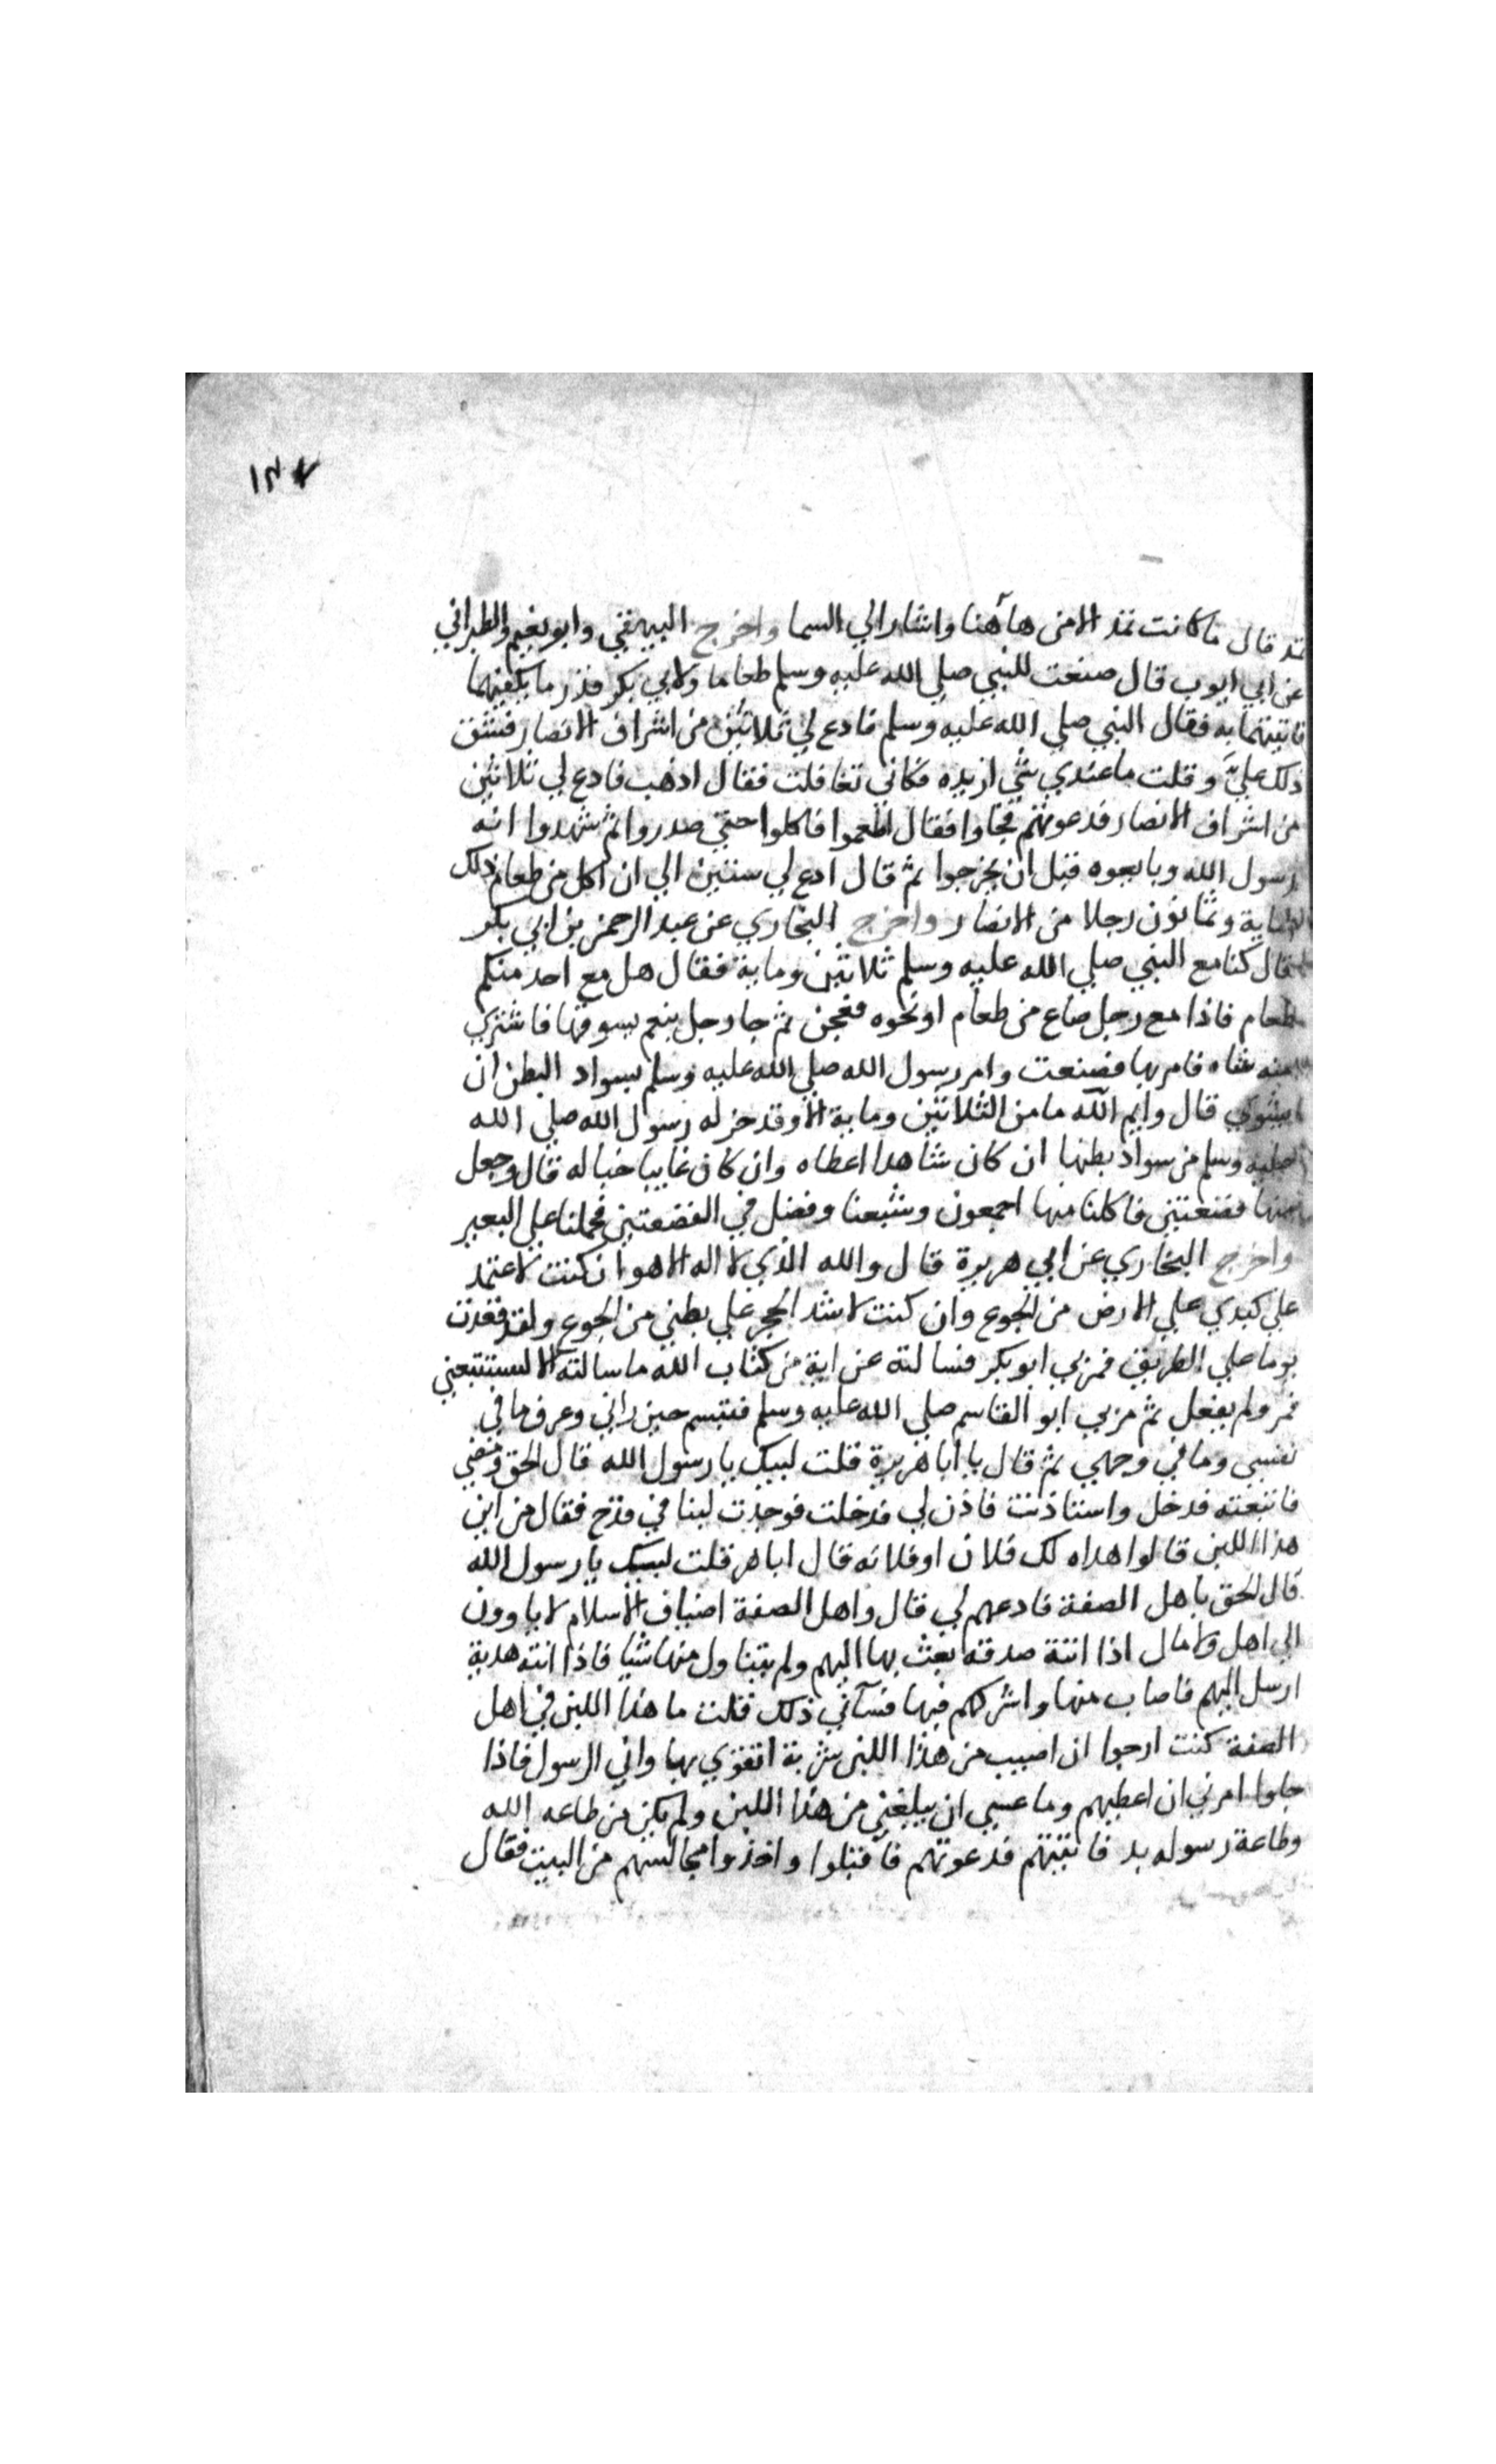 ١٣٧
تمد قال ما كانت تمد الا من هاهنا واشار الي السما واخرج البيهقي وابو نعيم والطبراني
عن ابي ايوب قال صنعت للنبي صلي الله عليه وسلم طعاما ولابي بكر قدر ما يكفيهما
فاتيتهما به فقال النبي صلي الله عليه وسلم فادع لي ثلاثين من اشراف الانصار فشق
ذلك عليَّ وقلت ما عندي شي ازيده فكاني تغافلت فقال اذهب فادع لي ثلاثين
من اشراف الانصار فدعوتهم فجاوا فقال اطعموا فاكلوا حتي صدروا ثم شهدوا انه
رسول الله وبايعوه قبل ان يخرجوا ثم قال ادع لي ستين الي ان اكل من طعام ذلك
ماية وثمانون رجلا من الانصار واخرج البخاري عن عبد الرحمن بن ابي بكر
قال كنا مع النبي صلي الله عليه وسلم ثلاثين وماية فقال هل مع احد منكم
طعام فاذا مع رجل صاع من طعام او نحوه فعجن ثم جا رجل بنعم يسوقها فاشتري
منه شاه فامر بها فصنعت وامر رسول الله صلي الله عليه وسلم بسواد البطن ان
يشوي قال وايم الله ما من الثلاثين وماية الا وقد حز له رسول الله صلي الله
عليه وسلم من سواد بطنها ان كان شاهدا اعطاه وان كان غايبا خبا له قال وجعل
منها قصعتين فاكلنا منها اجمعون وشبعنا وفضل في القصعتين فحملنا علي البعير
واخرج البخاري عن ابي هريرة قال والله الذي لا اله الا هو ان كنت لاعتمد
علي كبدي علي الارض من الجوع وان كنت لاشد الحجر علي بطني من الجوع ولقد قعدت
يوما علي الطريق فمر بي ابو بكر فسالته عن اية من كتاب الله ما سالته الا ليستتبعني
فمر ولم يفعل ثم مر بي ابو القاسم صلي الله عليه وسلم فتبسم حين راني وعرف ما في
نفسي وما في وجهي ثم قال يا ابا هريرة قلت لبيك يا رسول الله قال الحق ومضي
فاتبعته فدخل واستاذنت فاذن لي فدخلت فوجدت لبنا في قدح فقال من اين
هذا اللبن قالوا اهداه لك فلان او فلانه قال ابا هر قلت لبيك يا رسول الله
قال الحق باهل الصفة فادعهم لي قال واهل الصفة اضياف الاسلام لا ياوون
الي اهل ولا مال اذا اتته صدقة بعث بها اليهم ولم يتناول منها شيا فاذا اتته هدية
ارسل اليهم فاصاب منها واشركهم فيها فسآني ذلك قلت ما هذا اللبن في اهل
الصفة كنت ارجوا ان اصيب من هذا اللبن شربة اتقوي بها واني الرسول فاذا
جاوا امرني ان اعطيهم وما عسي ان يبلغني من هذا اللبن ولم يكن من طاعه الله
وطاعة رسوله بد فاتيتهم فدعوتهم فاقبلوا واخذوا مجالسهم من البيت فقال